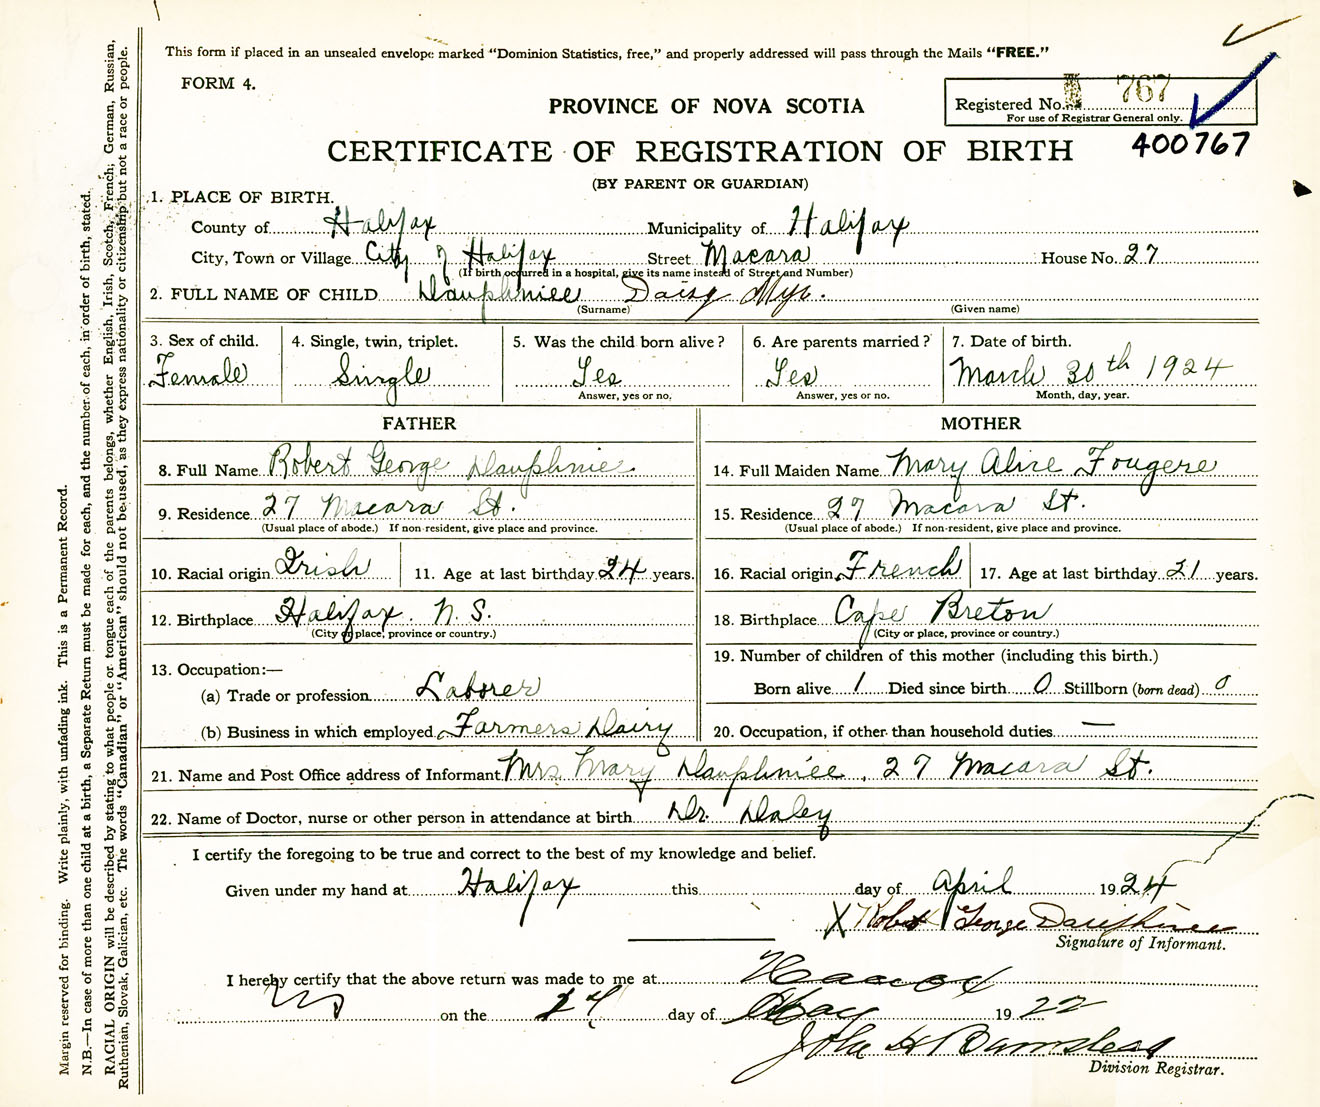 This form if placed in an unsealed envelope marked “Dominion Statistics, free,” and properly addressed will pass through the Mails “FREE.”
FORM 4.
Registered No. 767
For use of Registrar General only.
PROVINCE OF NOVA SCOTIA
400767
CERTIFICATE OF REGISTRATION OF BIRTH
(BY PARENT OR GUARDIAN)
1. PLACE OF BIRTH.
County of Halifax Municipality of Halifax
City, Town or Village City of Halifax Street Macara House No. 27
(If birth occurred in a hospital, give its name instead of Street and Number)
2. FULL NAME OF CHILD Dauphinee Daisy
(Surname) (Given name)
3. Sex of child. 4. Single, twin, triplet. 5. Was the child born alive? 6. Are parents married? 7. Date of birth.
Female Single Yes Yes March 30th 1924
Answer, yes or no. Answer, yes or no. Month, day, year.
FATHER
8. Full Name Robert George Dauphinee
9. Residence 27 Macara St.
(Usual place of abode.) If non-resident, give place and province.
10. Racial origin Irish 11. Age at last birthday 24 years.
12. Birthplace Halifax. N.S.
(City or place, province or country.)
13. Occupation:—
(a) Trade or profession Laborer
(b) Business in which employed Farmers Dairy
MOTHER
14. Full Maiden Name Mary Alice Fougere
15. Residence 27 Macara St.
(Usual place of abode.) If non-resident, give place and province.
16. Racial origin French 17. Age at last birthday 21 years.
18. Birthplace Cape Breton
(City or place, province or country.)
19. Number of children of this mother (including this birth.)
Born alive 1 Died since birth 0 Stillborn (born dead) 0
20. Occupation, if other than household duties —
21. Name and Post Office address of Informant Mrs. Mary Dauphinee, 27 Macara St.
22. Name of Doctor, nurse or other person in attendance at birth Dr. Daley
I certify the foregoing to be true and correct to the best of my knowledge and belief.
Given under my hand at Halifax this day of April 1924
X Robert George Dauphinee
Signature of Informant.
I hereby certify that the above return was made to me at
on the day of 19
John H Barnstead
Division Registrar.
Margin reserved for binding. Write plainly, with unfading ink. This is a Permanent Record.
N.B.—In case of more than one child at a birth, a Separate Return must be made for each, and the number of each, in order of birth, stated.
RACIAL ORIGIN will be described by stating to what people or tongue each of the parents belongs, whether English, Irish, Scotch, French; German, Russian,
Ruthenian, Slovak, Galician, etc. The words “Canadian” or “American” should not be used, as they express nationality or citizenship but not a race or people.